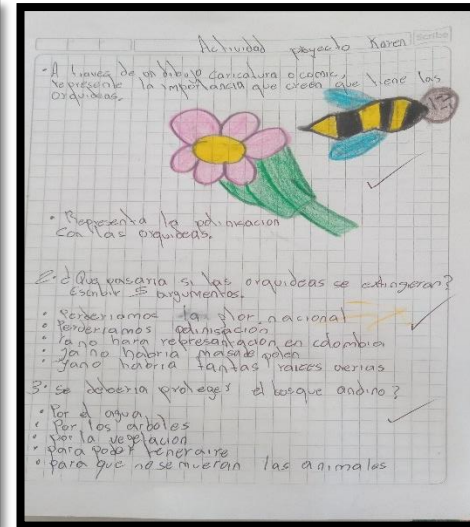 Actividad proyecto Karen
Scribe
• A traves de un dibujo caricatura o comic,
represente la importancia que creen que tiene las
orquideas.
• Representa la polinizacion
con las orquideas.
2. ¿Que pasaria si las orquideas se extingeran?
Escribir 5 argumentos.
• Perderiamos la flor nacional
• Perderiamos polinisación
• Ya no hara represantacion en colombia
• Ya no habria masa de polen
• Ya no habria tantas raices aerias
3. se deberia proteger el bosque andino?
• Por el agua
• Por los arboles
• por la vegetacion
• para poder tener aire
• para que no se mueran las animales